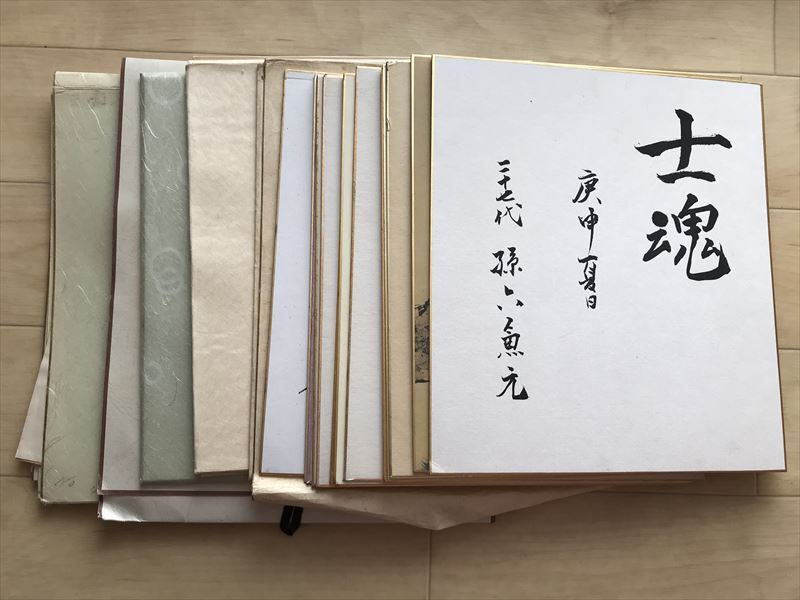 士魂
庚申夏日
二十七代 孫六兼元